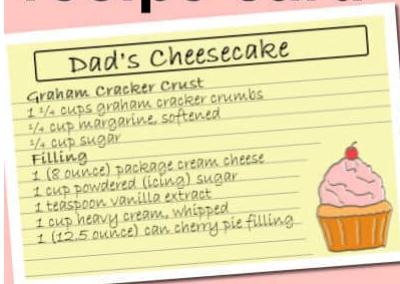 recipe card
Dad's Cheesecake
Graham Cracker Crust
1 1/4 cups graham cracker crumbs
1/4 cup margarine, softened
1/4 cup sugar
Filling
1 (8 ounce) package cream cheese
1 cup powdered (icing) sugar
1 teaspoon vanilla extract
1 cup heavy cream, whipped
1 (12.5 ounce) can cherry pie filling